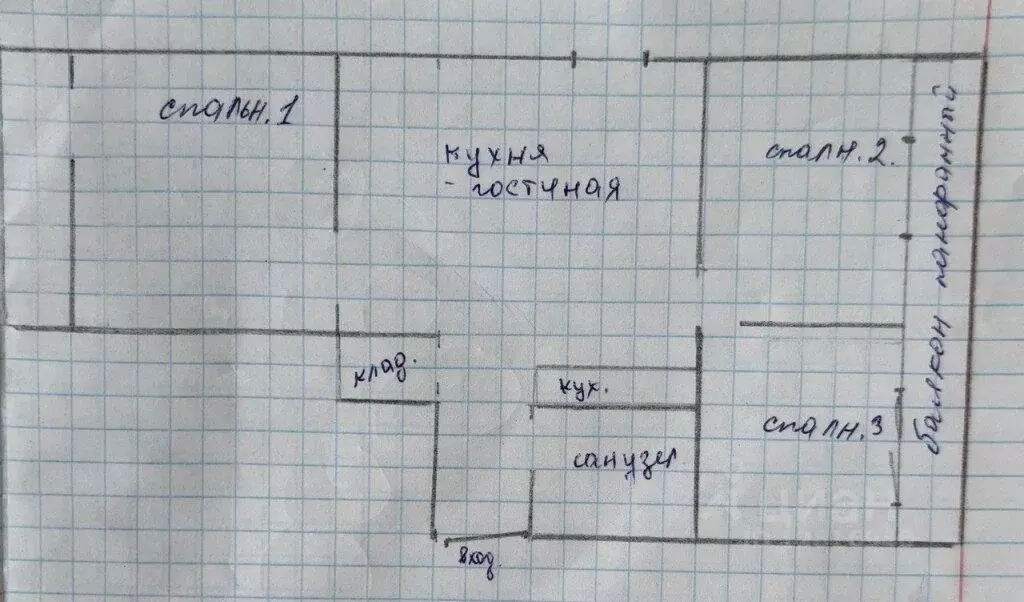 спальн. 1
кухня
- гостиная
спалн. 2.
балкон панорамный
клад.
кух.
спалн. 3
санузел
вход